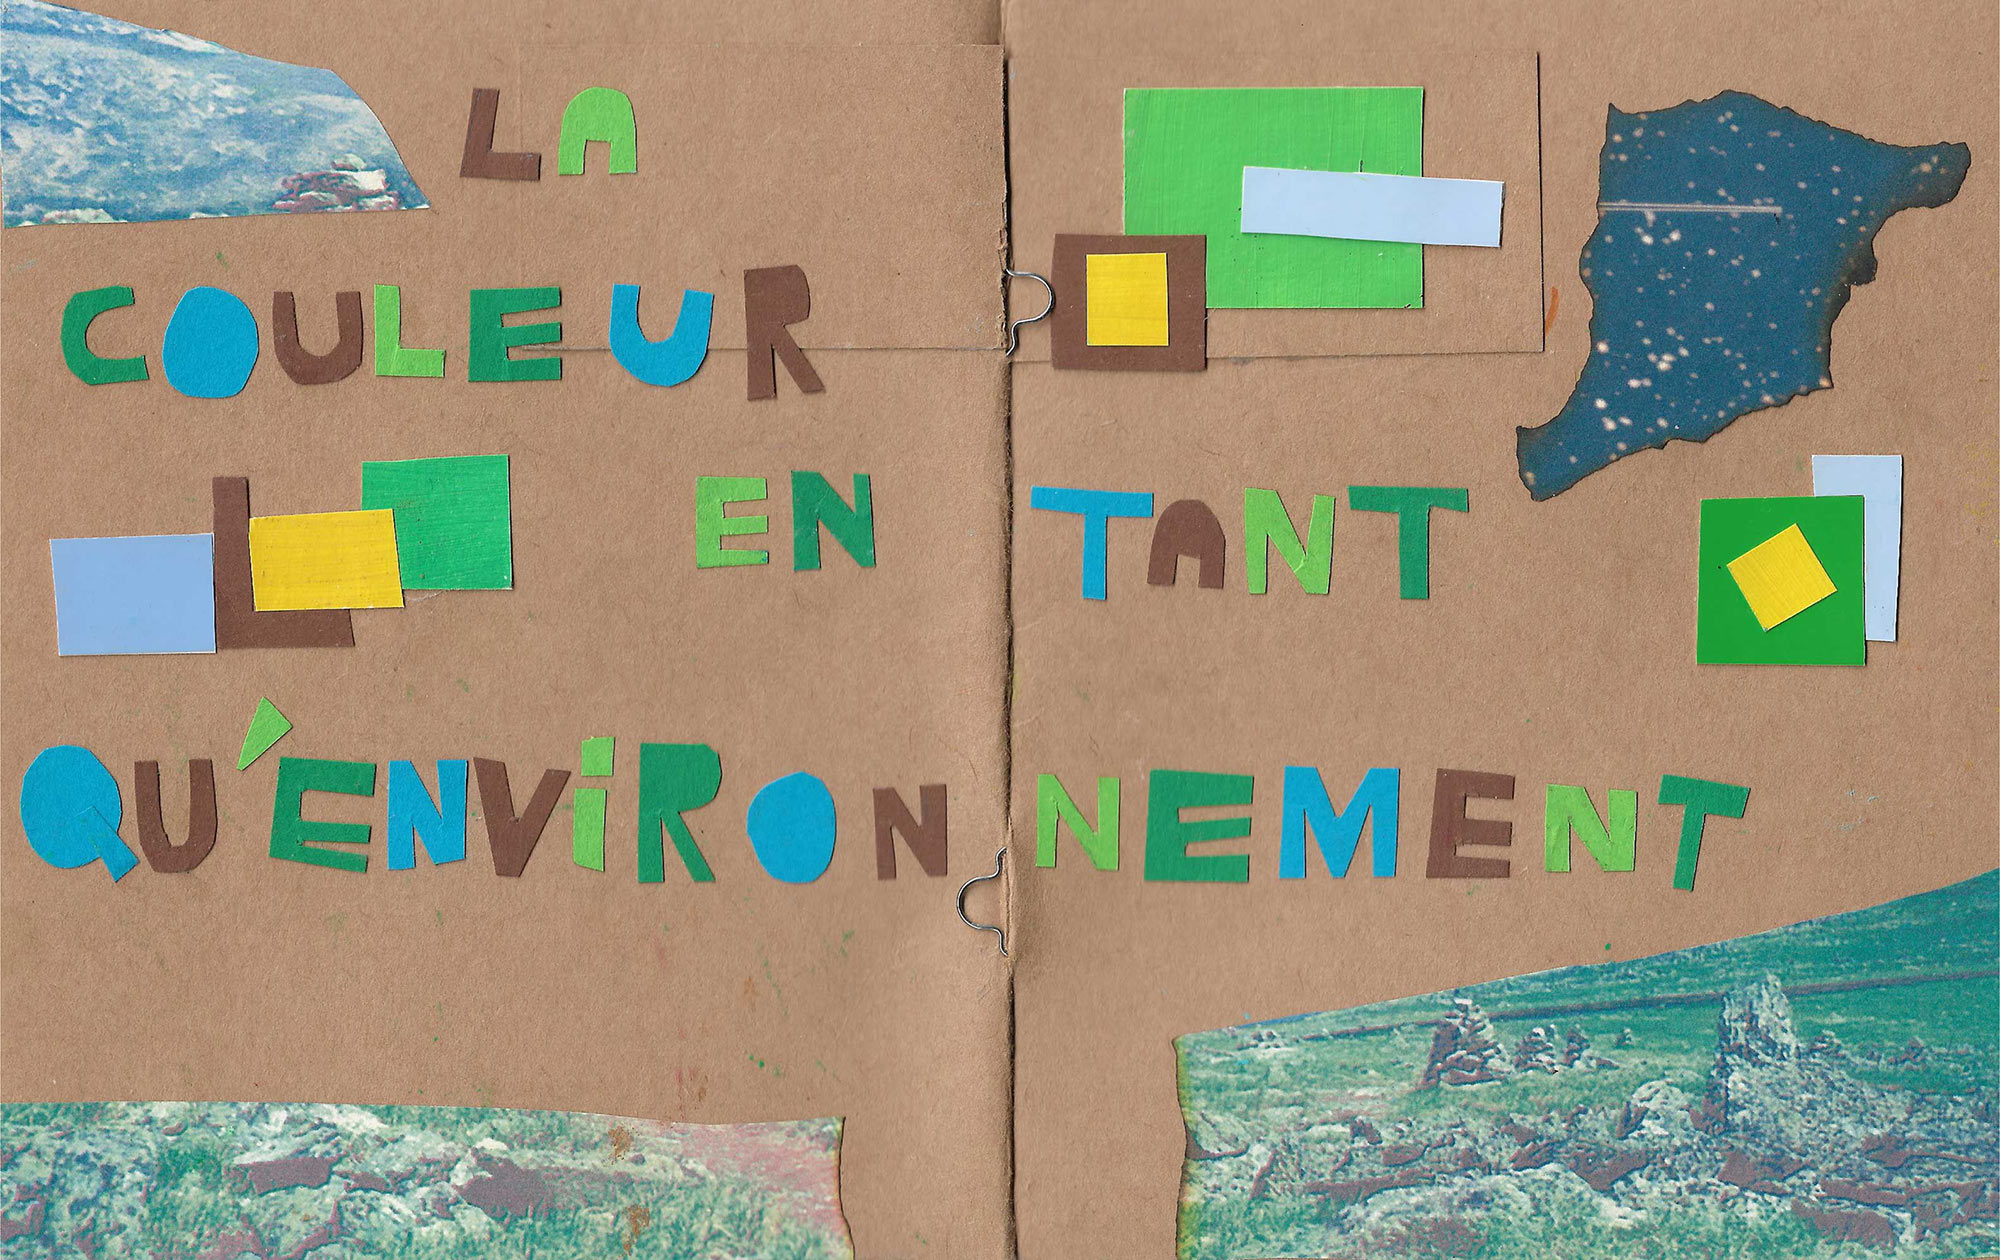 LA
COULEUR
EN TANT
QU'ENVIRONNEMENT